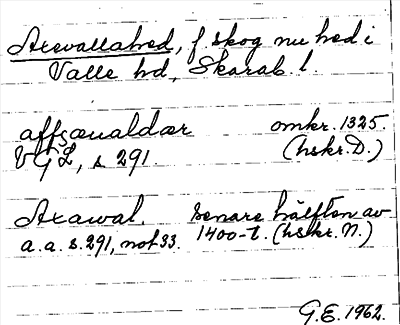 Axevallahed, f. skog nu hed i
Valle hd, Skarab. l.
affsæualdær omkr. 1325.
VGL, s 291. (hskr. D.)
Axawal. senare hälften av
a. a. s. 291, not 33. 1400-t. (hskr. N.)
G.E. 1962.